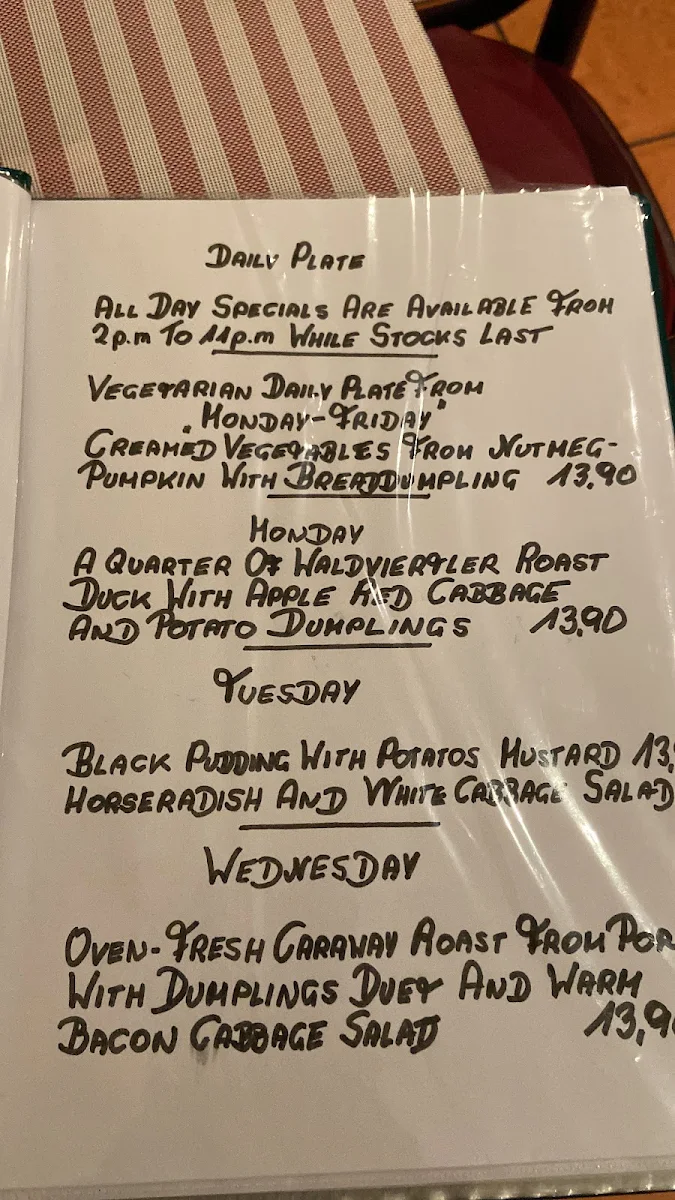 DAILY PLATE
ALL DAY SPECIALS ARE AVAILABLE FROM
2p.m TO 11p.m WHILE STOCKS LAST
VEGETARIAN DAILY PLATE FROM
„MONDAY-FRIDAY"
CREAMED VEGETABLES FROM NUTMEG-
PUMPKIN WITH BREADDUMPLING 13,90
MONDAY
A QUARTER OF WALDVIERTLER ROAST
DUCK WITH APPLE RED CABBAGE
AND POTATO DUMPLINGS 13,90
TUESDAY
BLACK PUDDING WITH POTATOS MUSTARD 13,
HORSERADISH AND WHITE CABBAGE SALAD
WEDNESDAY
OVEN-FRESH CARAWAY ROAST FROM POR
WITH DUMPLINGS DUET AND WARM
BACON CABBAGE SALAD 13,9